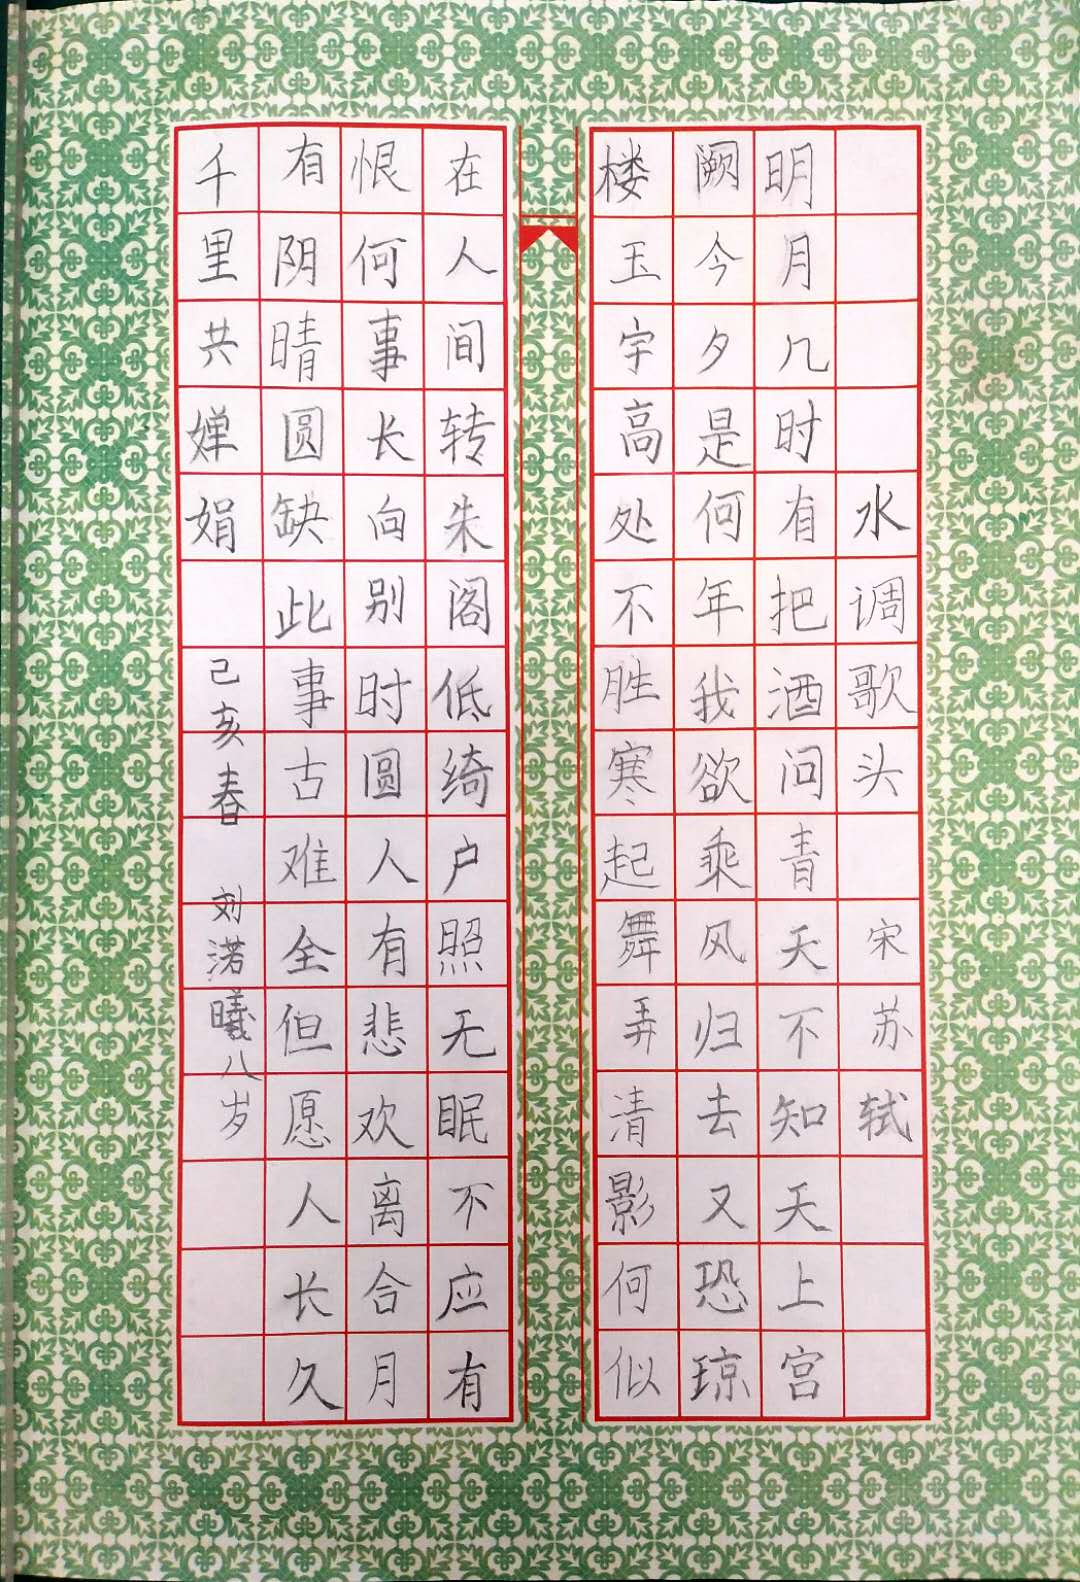 水调歌头 宋苏轼
明月几时有把酒问青天不知天上宫
阙今夕是何年我欲乘风归去又恐琼
楼玉宇高处不胜寒起舞弄清影何似
在人间转朱阁低绮户照无眠不应有
恨何事长向别时圆人有悲欢离合月
有阴晴圆缺此事古难全但愿人长久
千里共婵娟 己亥春 刘渃曦八岁